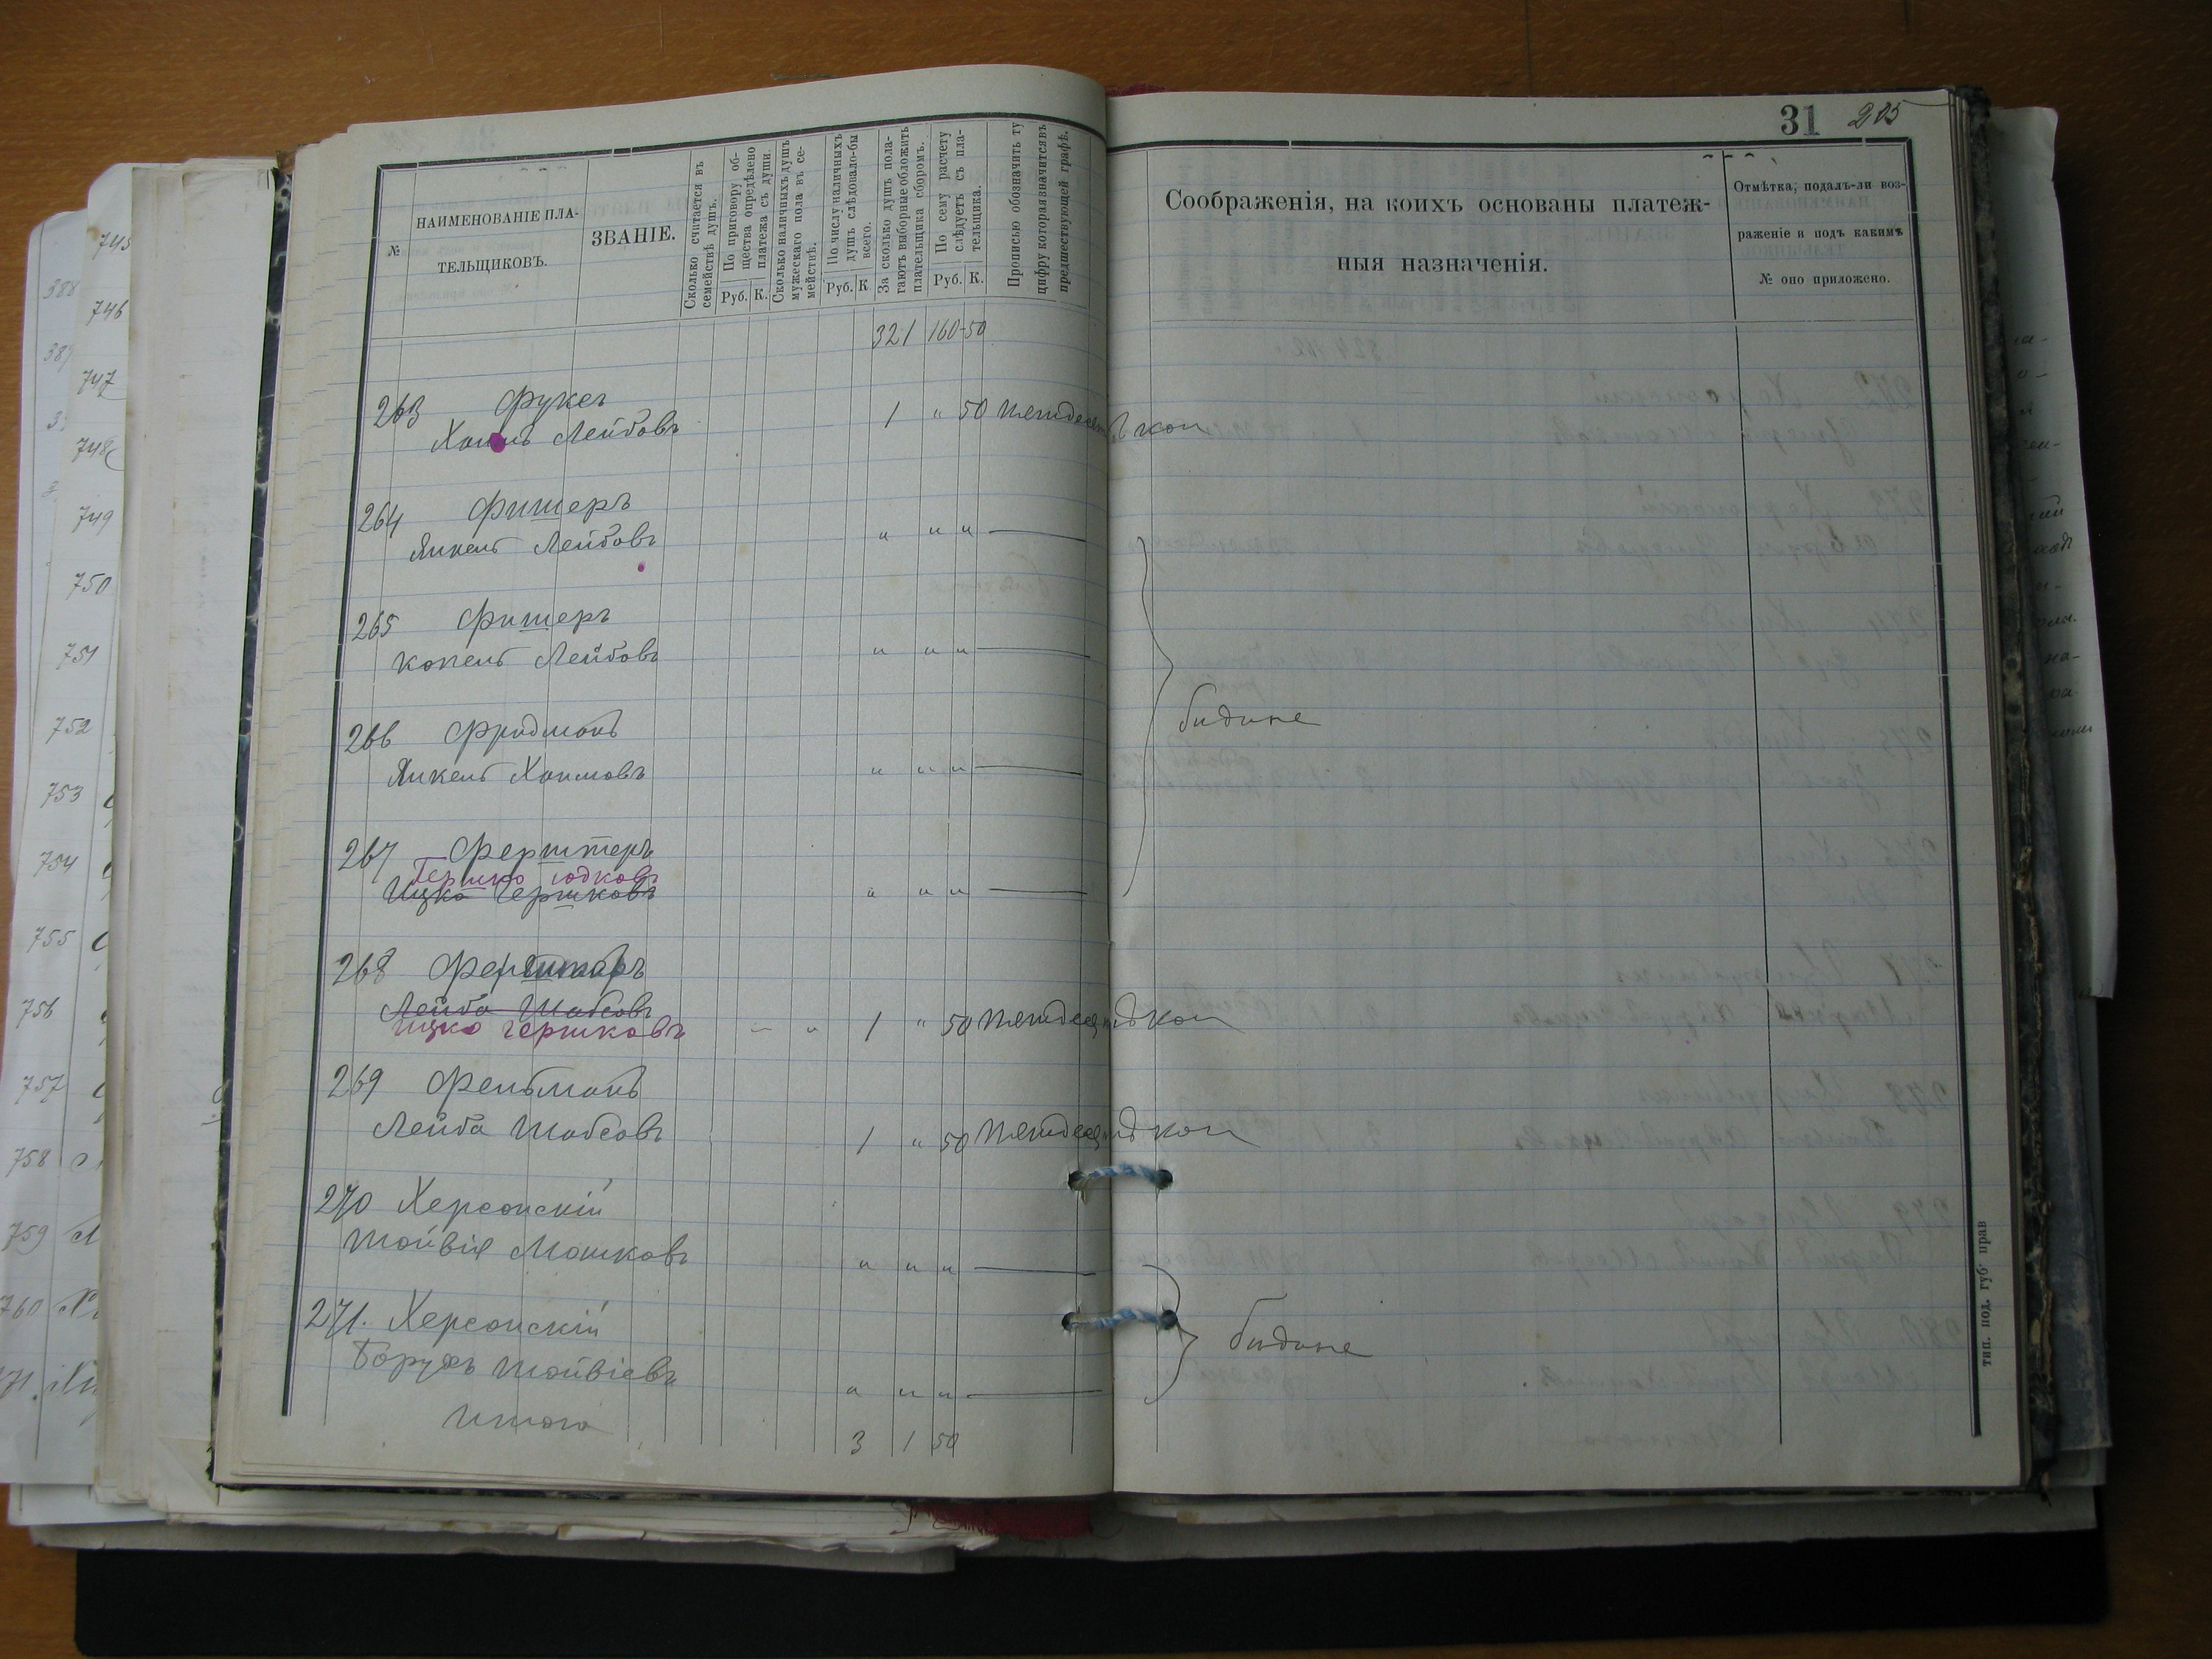 31 205
№
НАИМЕНОВАНІЕ ПЛА-
ТЕЛЬЩИКОВЪ.
ЗВАНІЕ.
Сколько считается въ
семействѣ душъ.
По приговору об-
щества опредѣлено
платежа съ души.
Руб. К.
Сколько наличныхъ душъ
мужескаго пола въ се-
мействѣ.
По числу наличныхъ
душъ слѣдовало-бы
всего.
Руб. К
За сколько душъ пола-
гаютъ выборные обложить
плательщика сборомъ.
По сему расчету
слѣдуетъ съ пла-
тельщика.
Руб. К.
Прописью обозначить ту
цифру которая значится въ
предшествующей графѣ.
Соображенія, на коихъ основаны платеж-
ныя назначенія.
Отмѣтка, подалъ-ли воз-
раженіе и подъ какимъ
№ оно приложено.
321 160-50
263 Фуксъ
Лейбовъ 1 " 50 коп
264 Фишеръ
Янкель Лейбовъ " " " —
265 Фишеръ
Копель Лейбовъ " " " —
266 Фридманъ
Янкель Хаимовъ " " " —
бидные
267 Ферштеръ
Гершко Юдковъ
Ицко Гершковъ " " " —
268
Лейба Шабсовъ
Ицко Гершковъ 1 " 50 коп
269 Фельманъ
Лейба Шабсовъ 1 " 50 коп
270 Херсонскій
Тойвія Мошковъ " " " —
271. Херсонскій
Борухъ Тойвіевъ " " " —
бидные
Итого 3 1 50
тип. под. губ. прав
745
746
747
748
749
750
751
752
753
754
755
756
757
758
759
760